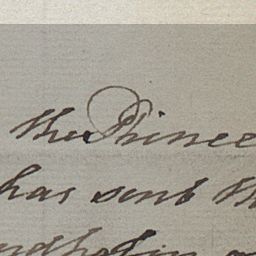 the Prince
has sent th